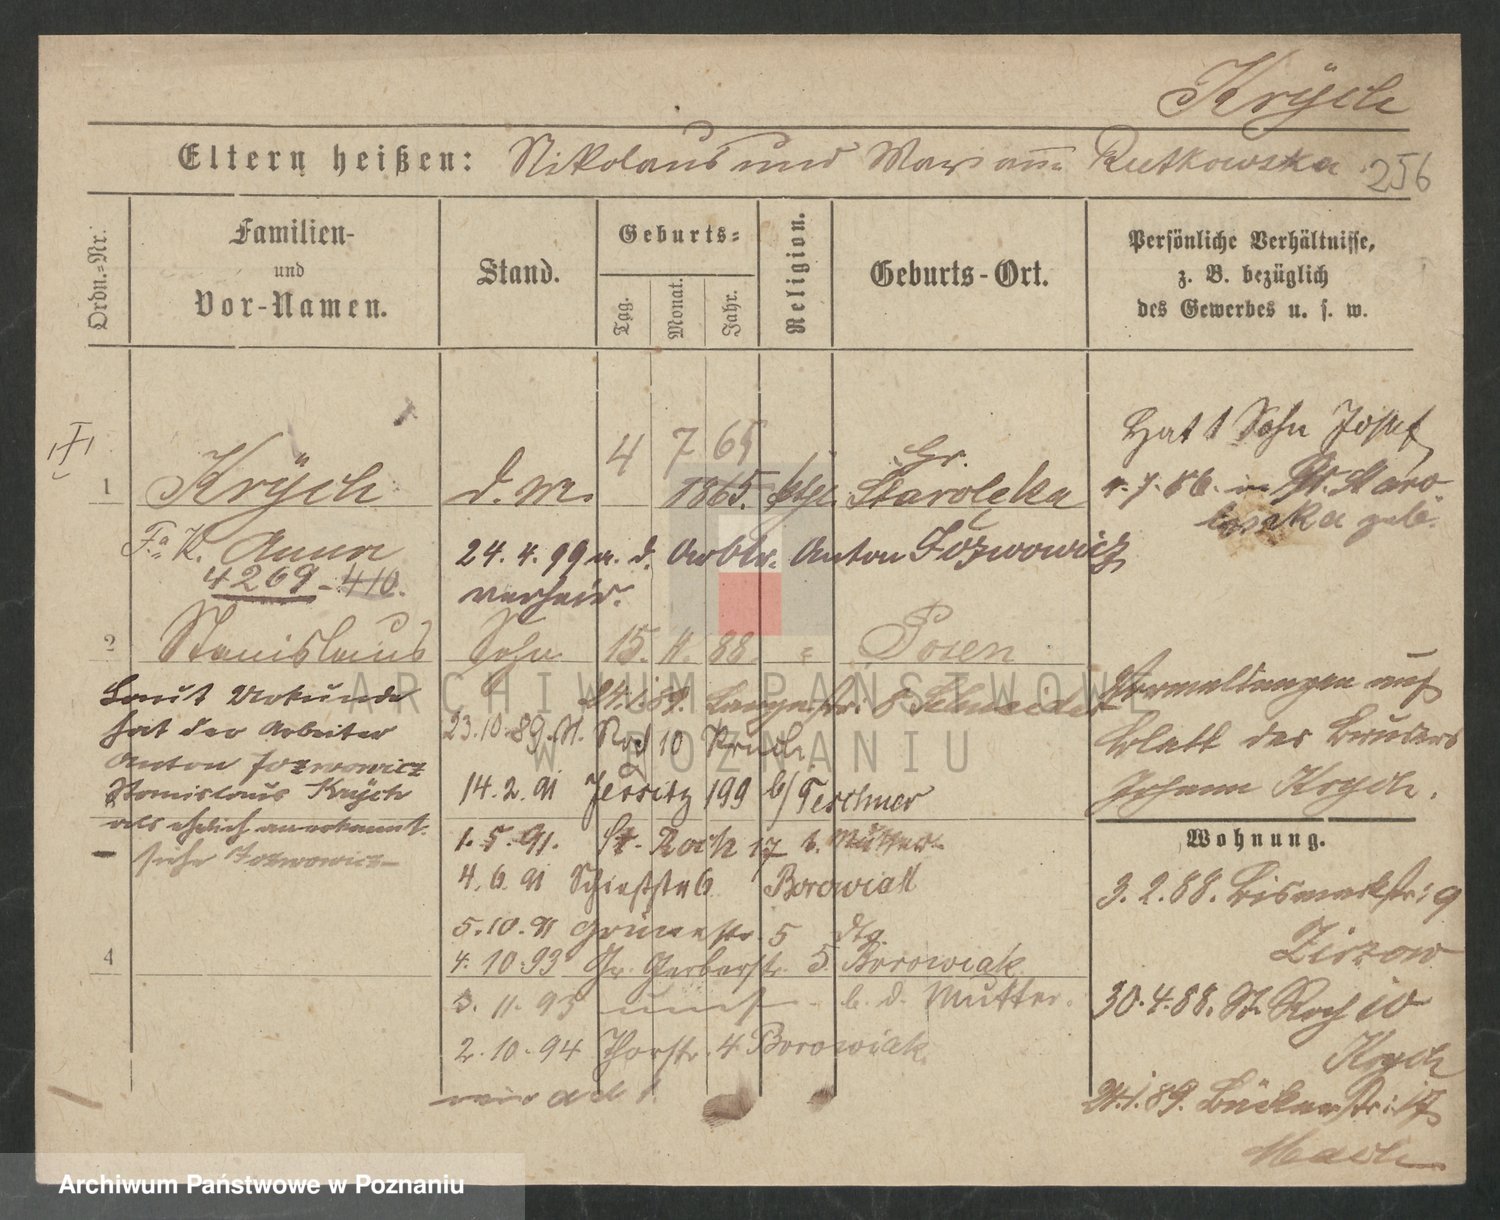 Krÿch
Eltern heißen: Nikolaus und Mariann Rutkowska 256
Ordn.-Nr.
Familien-
und
Vor-Namen.
Stand.
Geburts-
Tag.
Monat.
Jahr.
Religion.
Geburts-Ort.
Persönliche Verhältnisse,
z. B. bezüglich
des Gewerbes u. s. w.
Hat 1 Sohn Josef
4 7 65
1 Krÿch d. m. 1865. kth. Gr. Starolęka
7.86. in Gr. Staro-
lenka geb.
Anna
24.4.99 m. d. Arbtr. Anton Jozwowicz
4269-410.
verheir.
2 Stanislaus Sohn 15. 11. 88. " Posen
Laut Urkunde
hat der Arbeiter
Anton Jozwowicz
Stanislaus Krÿch
als ehelich anerkannt.
siehe Jozwowicz
24.1.89. Langestr. 8 Schneider
23.10.89. St. Roch 10 Krych
14.2.91 Jersitz 199 b/ Teschner
1.5.91. St. Roch 17 b. Mutter
4.6.91 Schießstr 6 Borowiak
5.10.91 Grünestr. 5 dto.
4
4.10.93 Gr. Gerberstr. 5 Borowiak
3.11.93 b. d. Mutter.
2.10.94 Thorstr. 4 Borowiak
Vermerkungen auf
Blatt des Bruders
Johann Krych.
Wohnung.
3.2.88. Bismarkstr: 9
Zirzow
30.4.88. St. Roch 10
Krych
24.1.89. Bäckerstr: 17
ARCHIWUM PAŃSTWOWE
W POZNANIU
Archiwum Państwowe w Poznaniu